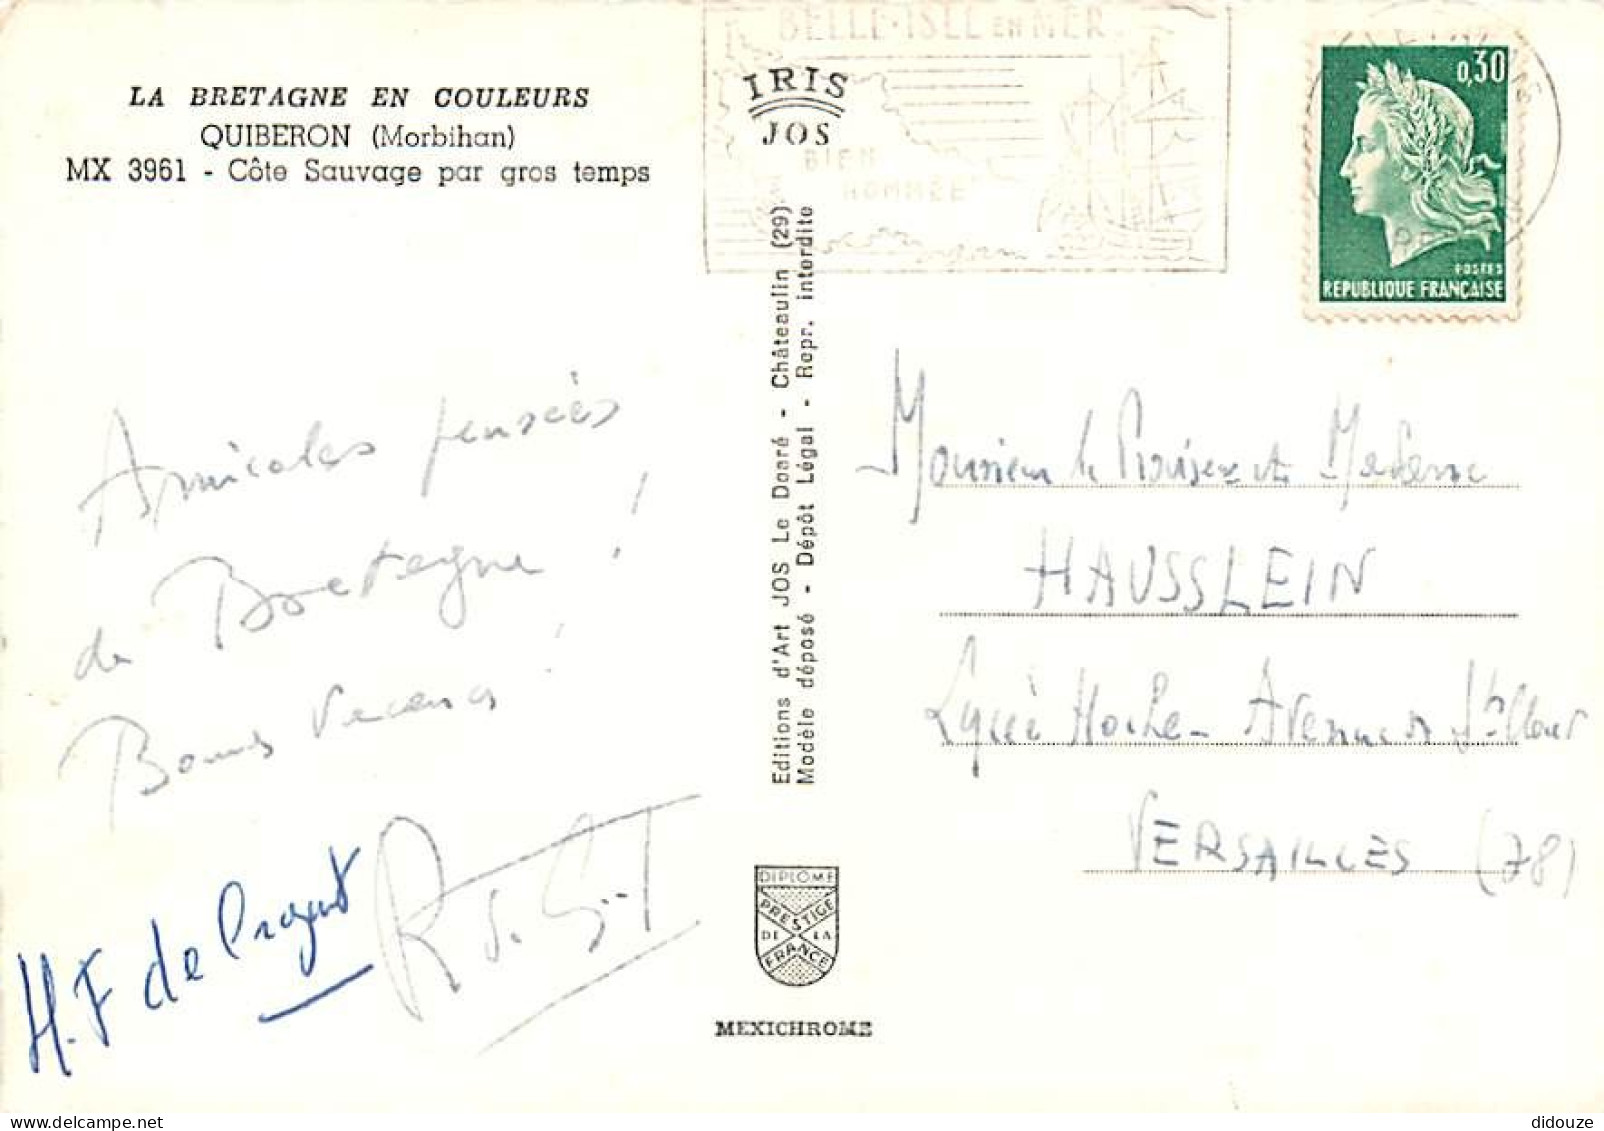 LA BRETAGNE EN COULEURS
QUIBERON (Morbihan)
MX 3961 - Côte Sauvage par gros temps
BELLE-ISLE EN MER
BIEN
NOMMÉE
IRIS
JOS
0,30
POSTES
REPUBLIQUE FRANÇAISE
Amicales pensées
de Bretagne !
Bonnes Vacances !
H. F de
Editions d'Art JOS Le Doaré - Châteaulin (29)
Modèle déposé - Dépôt Légal - Repr. interdite
Monsieur le Proviseur et Madame
HAUSSLEIN
Lycée Hoche - Avenue de St Cloud
VERSAILLES (78)
DIPLOME
PRESTIGE
DE LA
FRANCE
MEXICHROME
didouze